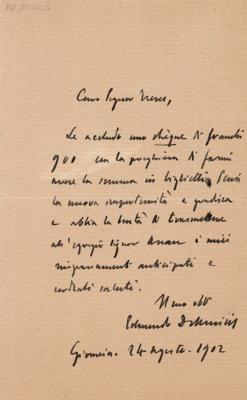 Caro Signor Treves,
Le accludo uno chèque di franchi
900 con la preghiera di farmi
avere la somma in biglietti. Scusi
la nuova importunità e gradisca
e abbia la bontà di trasmettere
all'egregio signor i miei
ringraziamenti anticipati e
cordiali saluti.
Suo aff
Edmondo De Amicis
24 agosto. 1902